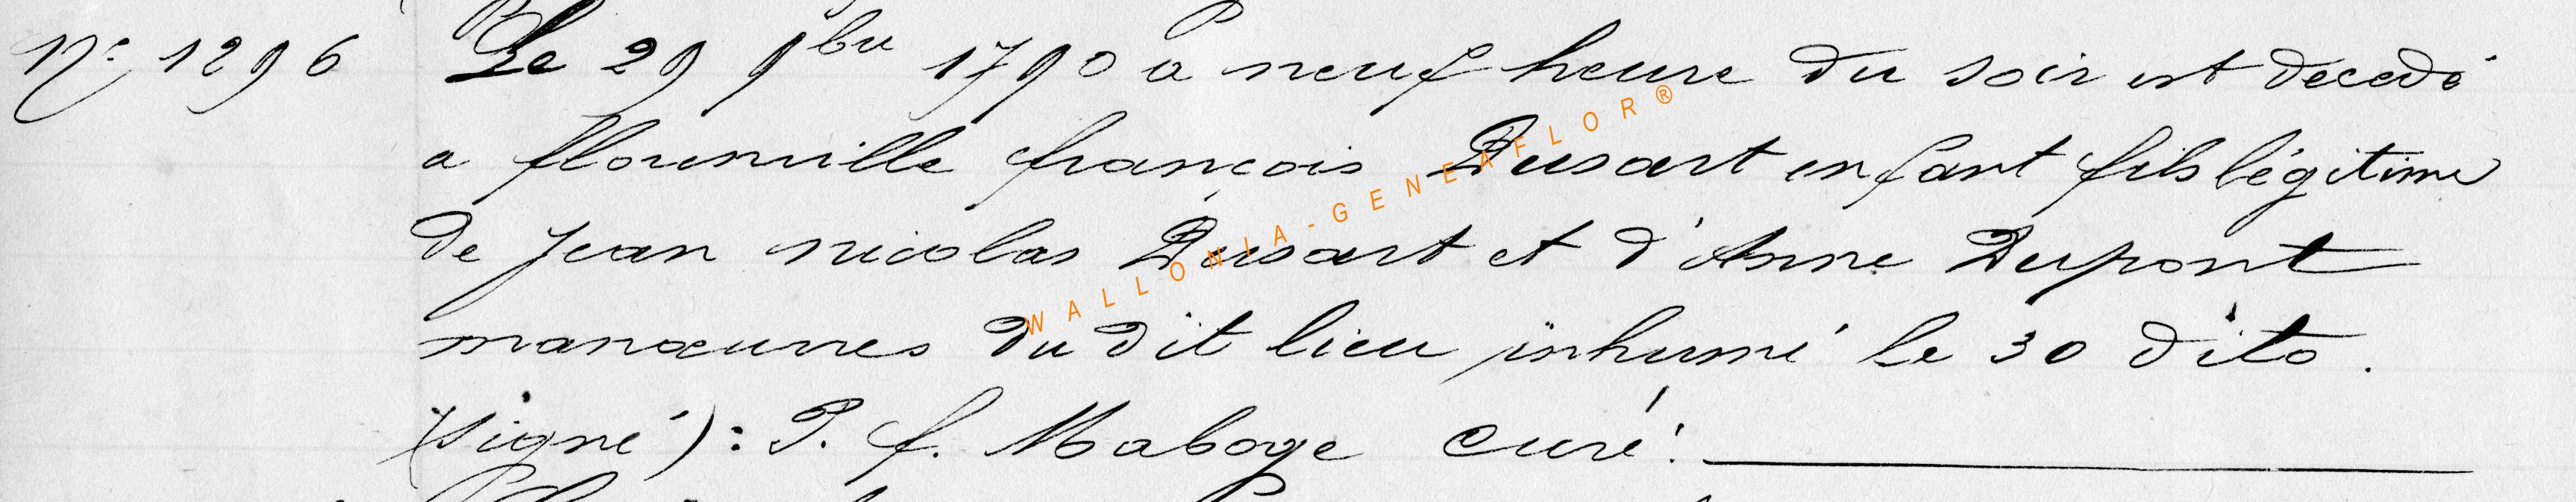 N° 1296 Le 29 9bre 1790 a neuf heure du soir est decedé
a florenville françois Dusart enfant fils légitime
de Jean nicolas Dusart et d'Anne Dupont
manœuvres du dit lieu inhumé le 30 dito.
(signé): P. f. Maboge curé.
WALLONIA-GENEAFLOR®